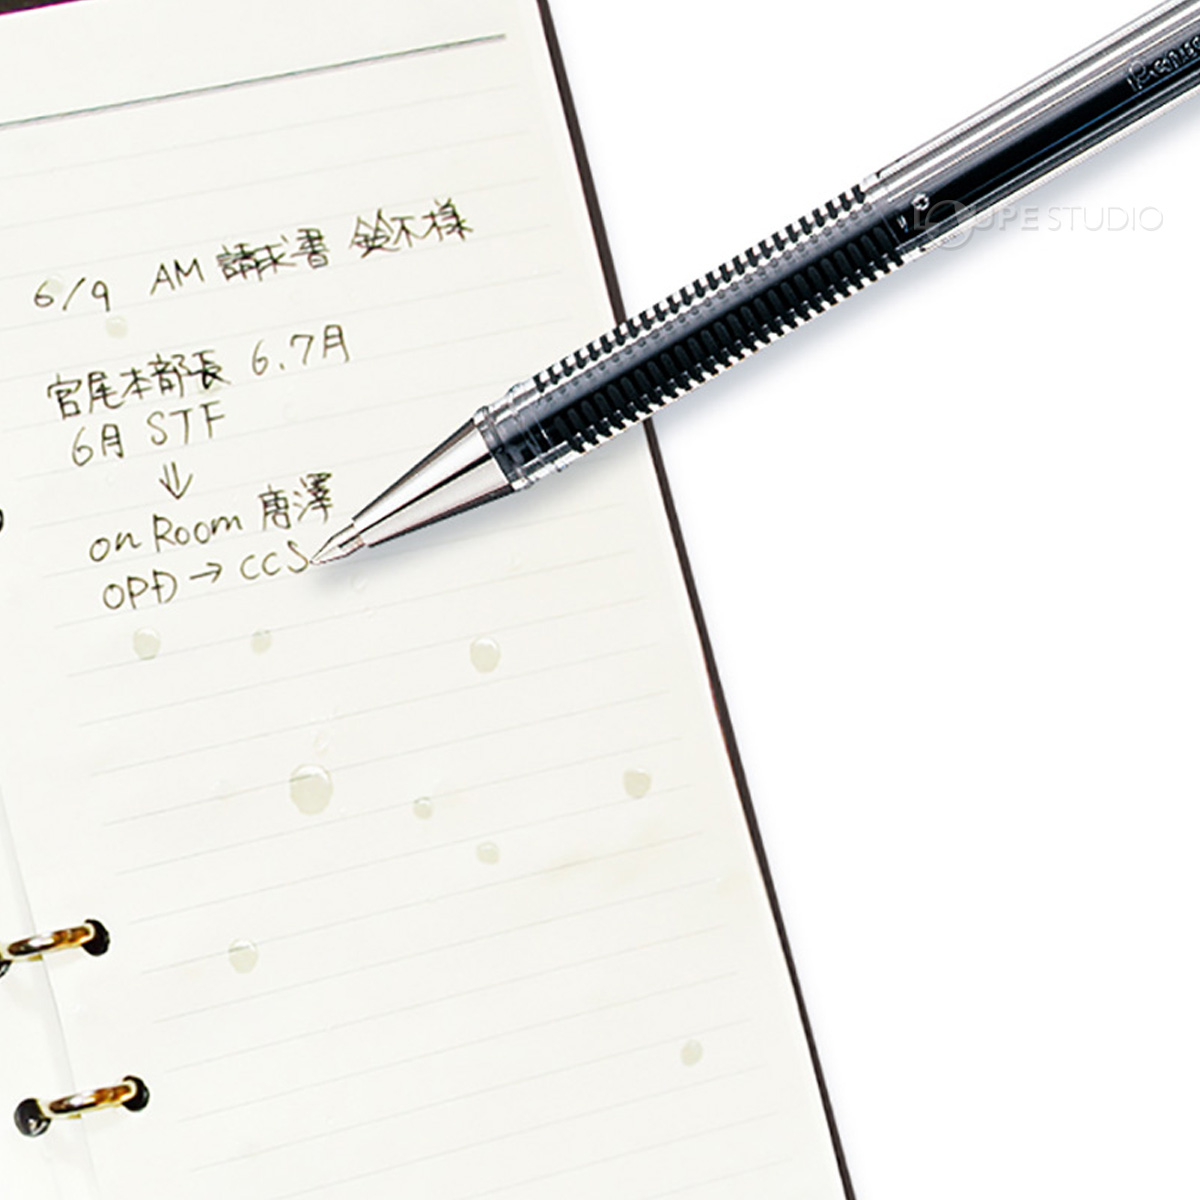 6/9 AM 請求書 鈴木様
宮尾本部長 6.7月
6月 STF
↓
on Room 唐澤
OPD → CCS
LOUPE STUDIO